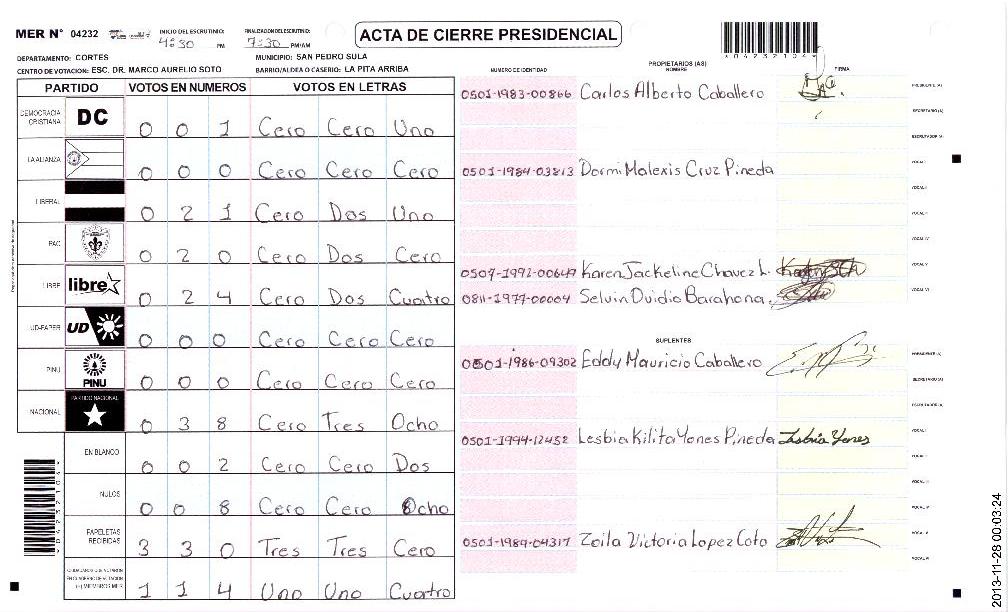 MER N° 04232 INICIO DEL ESCRUTINIO: 4:30 PM FINALIZACION DEL ESCRUTINIO: 7:30 PM/AM ACTA DE CIERRE PRESIDENCIAL *04232104*
DEPARTAMENTO: CORTES MUNICIPIO: SAN PEDRO SULA
CENTRO DE VOTACION: ESC. DR. MARCO AURELIO SOTO BARRIO/ALDEA O CASERIO: LA PITA ARRIBA
PARTIDO VOTOS EN NUMEROS VOTOS EN LETRAS
DEMOCRACIA CRISTIANA DC 0 0 1 Cero Cero Uno
LA ALIANZA 0 0 0 Cero Cero Cero
LIBERAL 0 2 1 Cero Dos Uno
PAC 0 2 0 Cero Dos Cero
LIBRE libre 0 2 4 Cero Dos Cuatro
UD-FAPER UD 0 0 0 Cero Cero Cero
PINU PINU 0 0 0 Cero Cero Cero
NACIONAL PARTIDO NACIONAL 0 3 8 Cero Tres Ocho
EN BLANCO 0 0 2 Cero Cero Dos
NULOS 0 0 8 Cero Cero Ocho
PAPELETAS RECIBIDAS 3 3 0 Tres Tres Cero
CIUDADANOS QUE VOTARON EN CUADERNO DE VOTACION (+) MIEMBROS MER 1 1 4 Uno Uno Cuatro
PROPIETARIOS (AS)
NUMERO DE IDENTIDAD NOMBRE FIRMA
0501-1983-00866 Carlos Alberto Caballero PRESIDENTE (A)
SECRETARIO (A)
ESCRUTADOR (A)
0501-1984-03813 Dormi Malexis Cruz Pineda VOCAL I
VOCAL II
VOCAL III
VOCAL IV
Karen Jackeline Chavez L. VOCAL V
0811-1977-00004 Selvin Ovidio Barahona. VOCAL VI
SUPLENTES
0501-1986-09302 Eddy Mauricio Caballero PRESIDENTE (A)
SECRETARIO (A)
ESCRUTADOR (A)
0501-1994-12452 Lesbia Kilita Yones Pineda Lesbia Yones VOCAL I
VOCAL II
VOCAL III
VOCAL IV
0501-1984-04317 Zoila Victoria Lopez Coto VOCAL V
VOCAL VI
2013-11-28 00:03:24